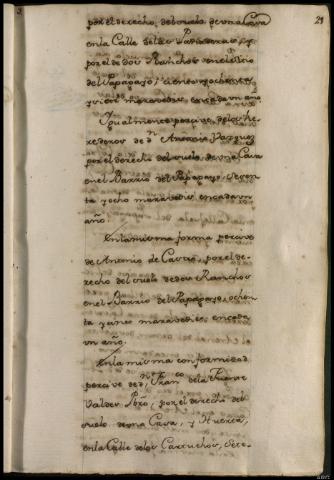 21
por el derecho, del suelo de una Casa
en la Calle de los
por el de dos Ranchos en el sitio
del Papagayo, ciento y ochenta,
y maravedis, en cada un año
Igualmente percive, de los he
rederos de Dn Antonio Vazquez
por el derecho del suelo, de una Casa
en el Barrio del Papagayo, seten
ta y ocho maravedis en cada un
año.
En la misma forma percive
de Antonio de Castro, por el de-
recho del suelo de dos Ranchos
en el Barrio del Papagayo, ochen
ta y cinco maravedis, en cada
un año.
En la misma conformidad
percive de Dn Franco de la Fuente
Valdes Pbro, por el derecho del
suelo de una Casa, y Huerta,
en la Calle de los Carruchos, Sete-